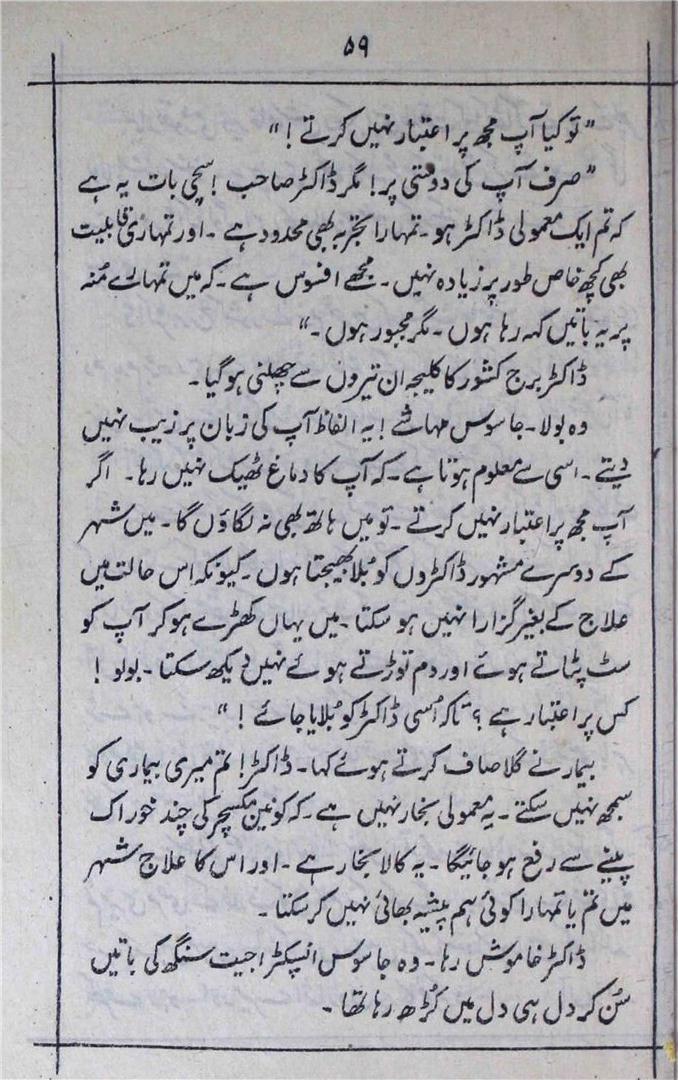 ۵۹
”تو کیا آپ مجھ پر اعتبار نہیں کرتے!“
”صرف آپ کی دوستی پر! مگر ڈاکٹر صاحب! سچی بات یہ ہے
کہ تم ایک معمولی ڈاکٹر ہو۔ تمہارا تجربہ بھی محدود ہے۔ اور تمہاری قابلیت
بھی کچھ خاص طور پر زیادہ نہیں۔ مجھے افسوس ہے۔ کہ میں تمہارے مُنہ
پر یہ باتیں کہہ رہا ہوں۔ مگر مجبور ہوں۔“
ڈاکٹر برج کشور کا کلیجہ ان تیروں سے چھلنی ہو گیا۔
وہ بولا۔ جاسوس مہاشے! یہ الفاظ آپ کی زبان پر زیب نہیں
دیتے۔ اسی سے معلوم ہوتا ہے۔ کہ آپ کا دماغ ٹھیک نہیں رہا۔ اگر
آپ مجھ پر اعتبار نہیں کرتے۔ تو میں ہاتھ بھی نہ لگاؤں گا۔ میں شہر
کے دوسرے مشہور ڈاکٹروں کو بُلا بھیجتا ہوں۔ کیونکہ اس حالت میں
علاج کے بغیر گزارا نہیں ہو سکتا۔ میں یہاں کھڑے ہو کر آپ کو
سٹ پٹاتے ہوئے اور دم توڑتے ہوئے نہیں دیکھ سکتا۔ بولو!
کس پر اعتبار ہے؟ تاکہ اُسی ڈاکٹر کو بُلایا جائے!“
بیمار نے گلا صاف کرتے ہوئے کہا۔ ڈاکٹر! تم میری بیماری کو
سمجھ نہیں سکتے۔ یہ معمولی بخار نہیں ہے۔ کہ کونین مکسچر کی چند خوراک
پینے سے رفع ہو جائیگا۔ یہ کالا بخار ہے۔ اور اس کا علاج شہر
میں تم یا تمہارا کوئی ہم پیشہ بھائی نہیں کر سکتا۔
ڈاکٹر خاموش رہا۔ وہ جاسوس انسپکٹر اجیت سنگھ کی باتیں
سُن کر دل ہی دل میں کُڑھ رہا تھا۔